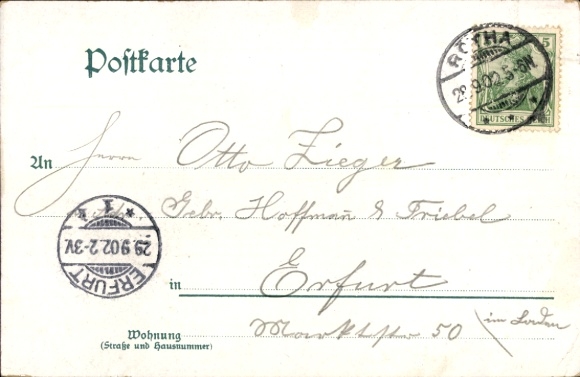 Postkarte
RÖTHA
28.9.02.5-6N.
5
DEUTSCHES REICH
An Herrn Otto Zieger
Gebr. Hoffmañ & Triebel
1
29.9.02.2-3V.
ERFURT
in Erfurt
Marktstr 50
im Laden
Wohnung
(Straße und Hausnummer)